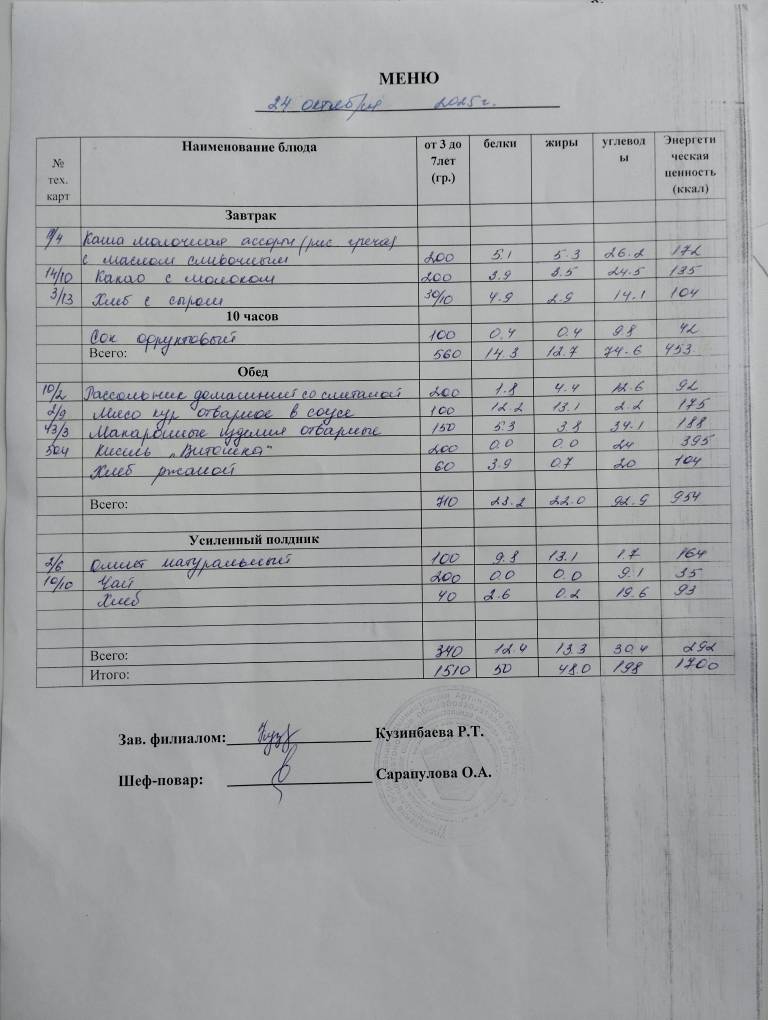 МЕНЮ
24 октября 2025г.
№ тех. карт Наименование блюда от 3 до 7лет (гр.) белки жиры углеводы Энергетическая ценность (ккал)
Завтрак
Каша молочная ассорти (рис гречка)
с маслом сливочным 200 5.1 5.3 26.2 172
14/10 Какао с молоком 200 3.9 3.5 24.5 135
3/13 Хлеб с сыром 30/10 4.9 2.9 14.1 104
10 часов
Сок фруктовый 100 0.4 0.4 9.8 42
Всего: 560 14.3 12.7 74.6 453
Обед
10/2 Рассольник домашний со сметаной 200 1.8 4.4 12.6 92
2/9 Мясо кур отварное в соусе 100 12.2 13.1 2.2 175
43/3 Макаронные изделия отварные 150 5.3 3.8 34.1 188
504 Кисель „Витошка" 200 0.0 0.0 24 395
Хлеб ржаной 60 3.9 0.7 20 104
Всего: 710 23.2 22.0 92.9 954
Усиленный полдник
2/6 Омлет натуральный 100 9.8 13.1 1.7 164
10/10 Чай 200 0.0 0.0 9.1 35
Хлеб 40 2.6 0.2 19.6 93
Всего: 340 12.4 13.3 30.4 292
Итого: 1510 50 48.0 198 1700
Зав. филиалом: Кузинбаева Р.Т.
Шеф-повар: Сарапулова О.А.